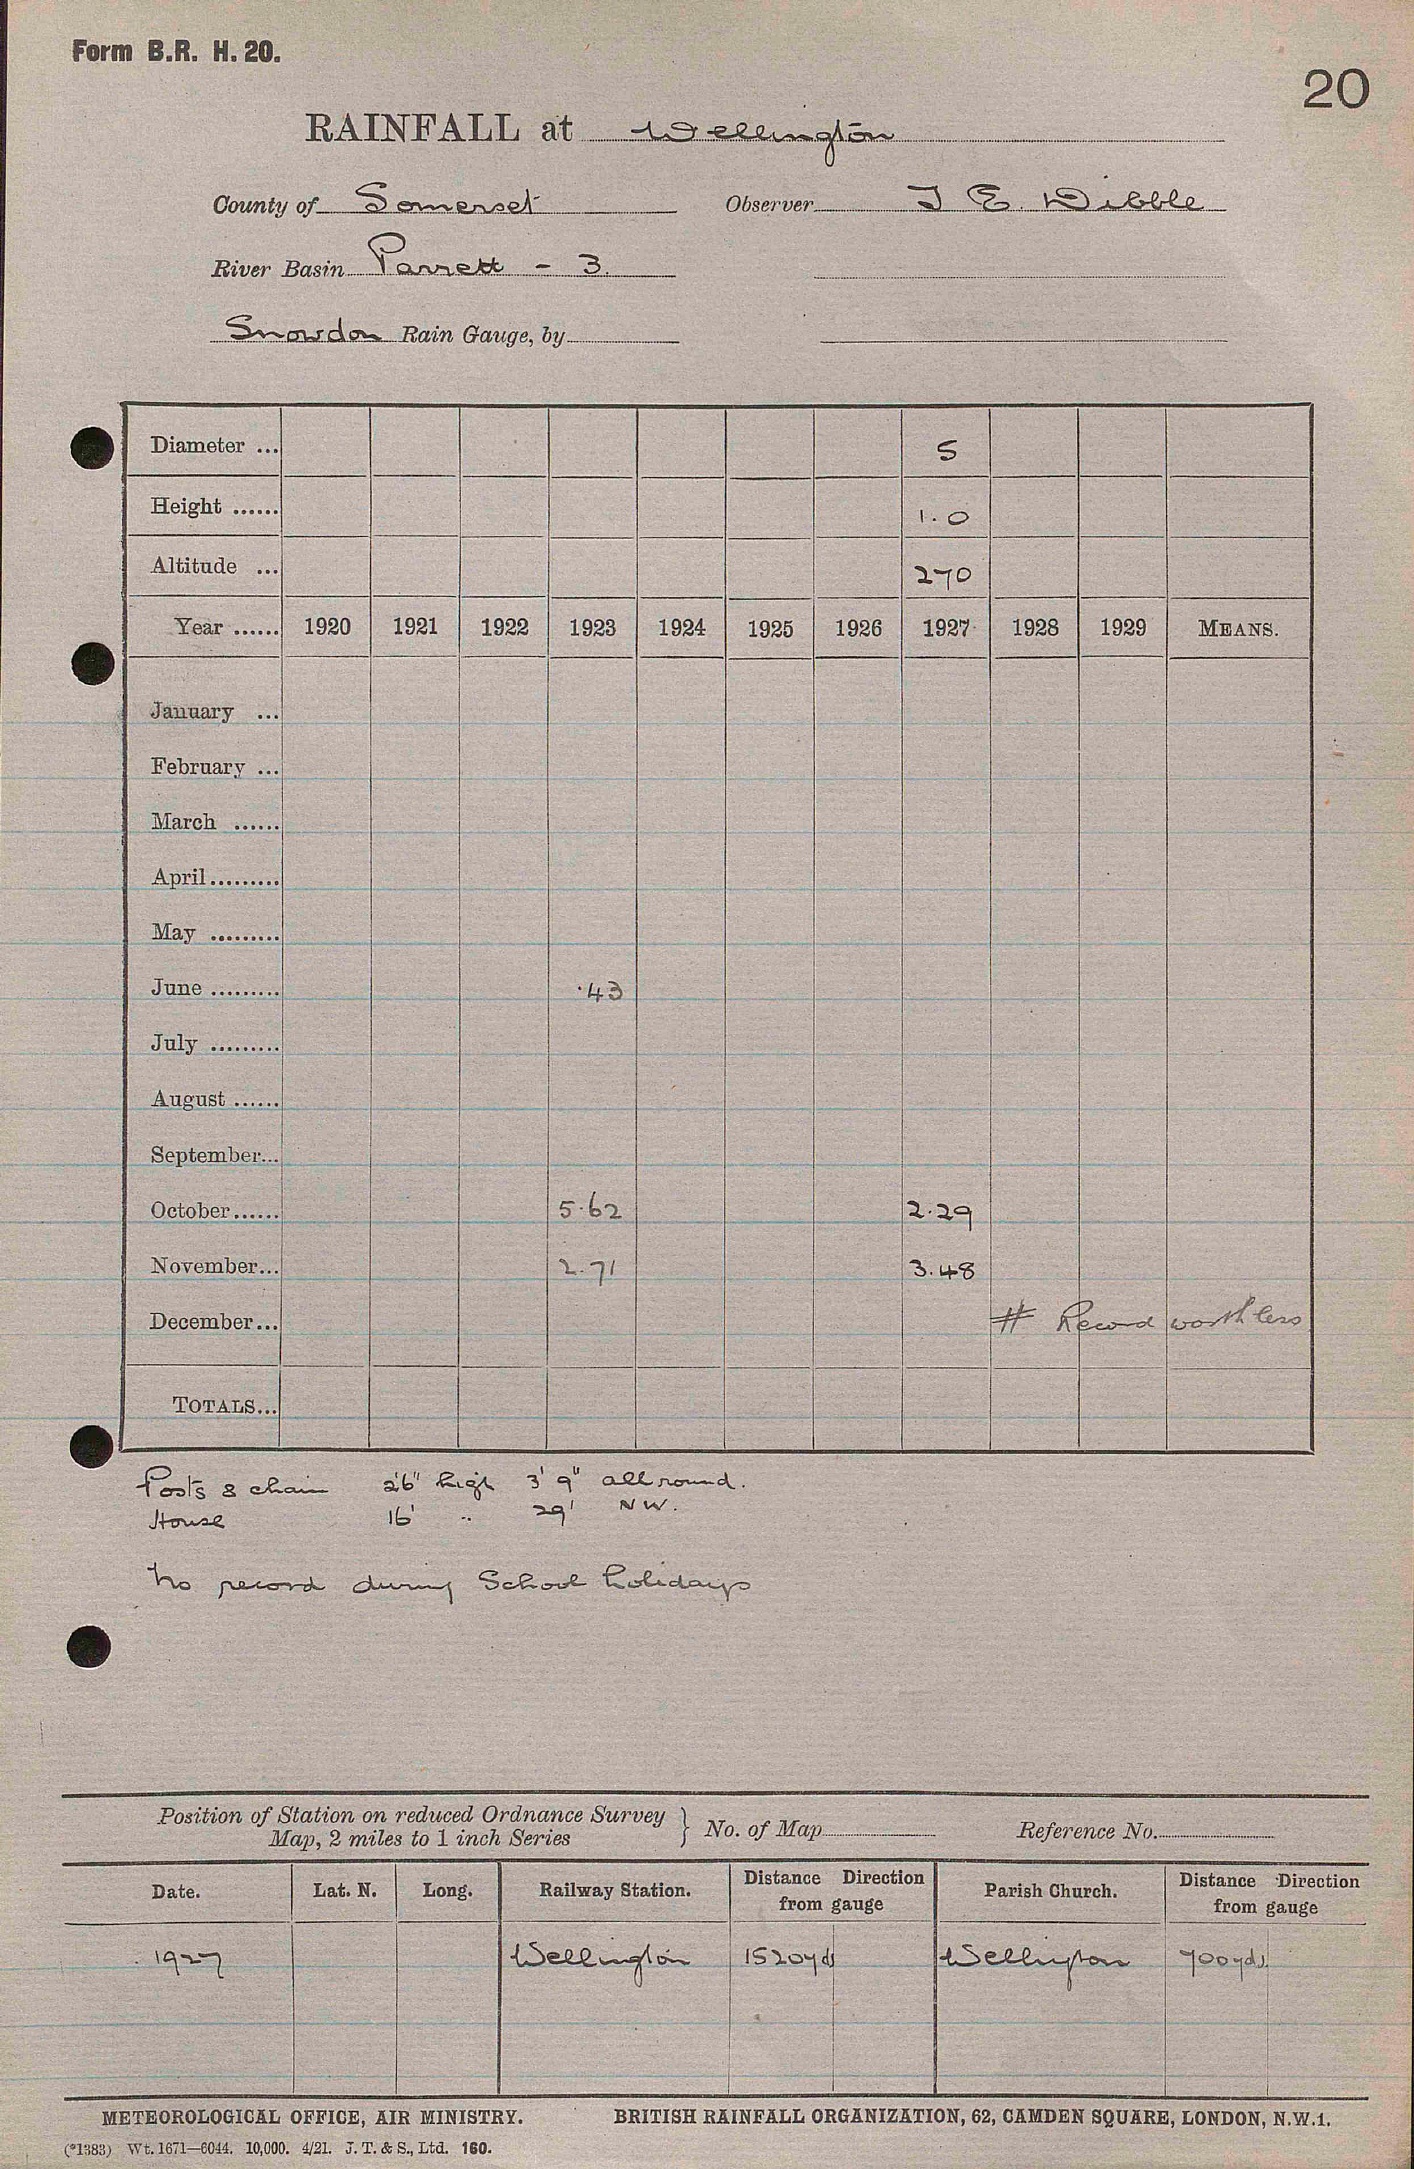 Form B.R. H. 20.
20
RAINFALL at Wellington
County of Somerset Observer J E. Dibble
River Basin Parrett - 3.
Snowdon Rain Gauge, by
Diameter ... 5
Height ...... 1.0
Altitude ... 270
Year ...... 1920 1921 1922 1923 1924 1925 1926 1927 1928 1929 MEANS.
January ...
February ...
March ......
April.........
May .........
June ......... ·43
July .........
August ......
September...
October...... 5·62 2.29
November... 2.71 3.48
December... # Record worthless
TOTALS...
Posts & chain 2'6" high 3' 9" all round.
House 16' .. 29' NW.
No record during School holidays
Position of Station on reduced Ordnance Survey
Map, 2 miles to 1 inch Series } No. of Map Reference No.
Date. Lat. N. Long. Railway Station. Distance Direction from gauge Parish Church. Distance Direction from gauge
1927 Wellington 1520yds Wellington 700yds.
METEOROLOGICAL OFFICE, AIR MINISTRY. BRITISH RAINFALL ORGANIZATION, 62, CAMDEN SQUARE, LONDON, N.W.1.
(*1383) Wt. 1671—6044. 10,000. 4/21. J. T. & S., Ltd. 160.